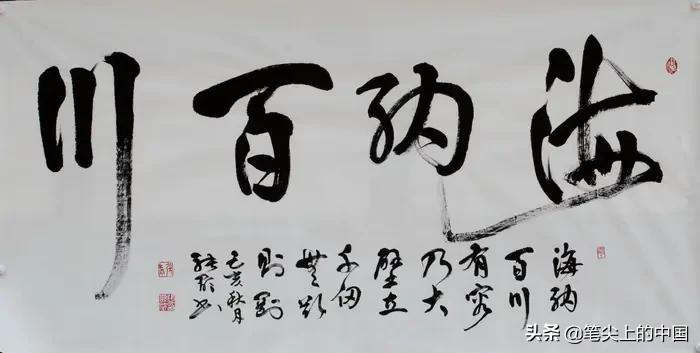 海纳百川
海纳
百川
有容
乃大
壁立
千仞
無欲
则刚
己亥秋月
书
头条 @笔尖上的中国